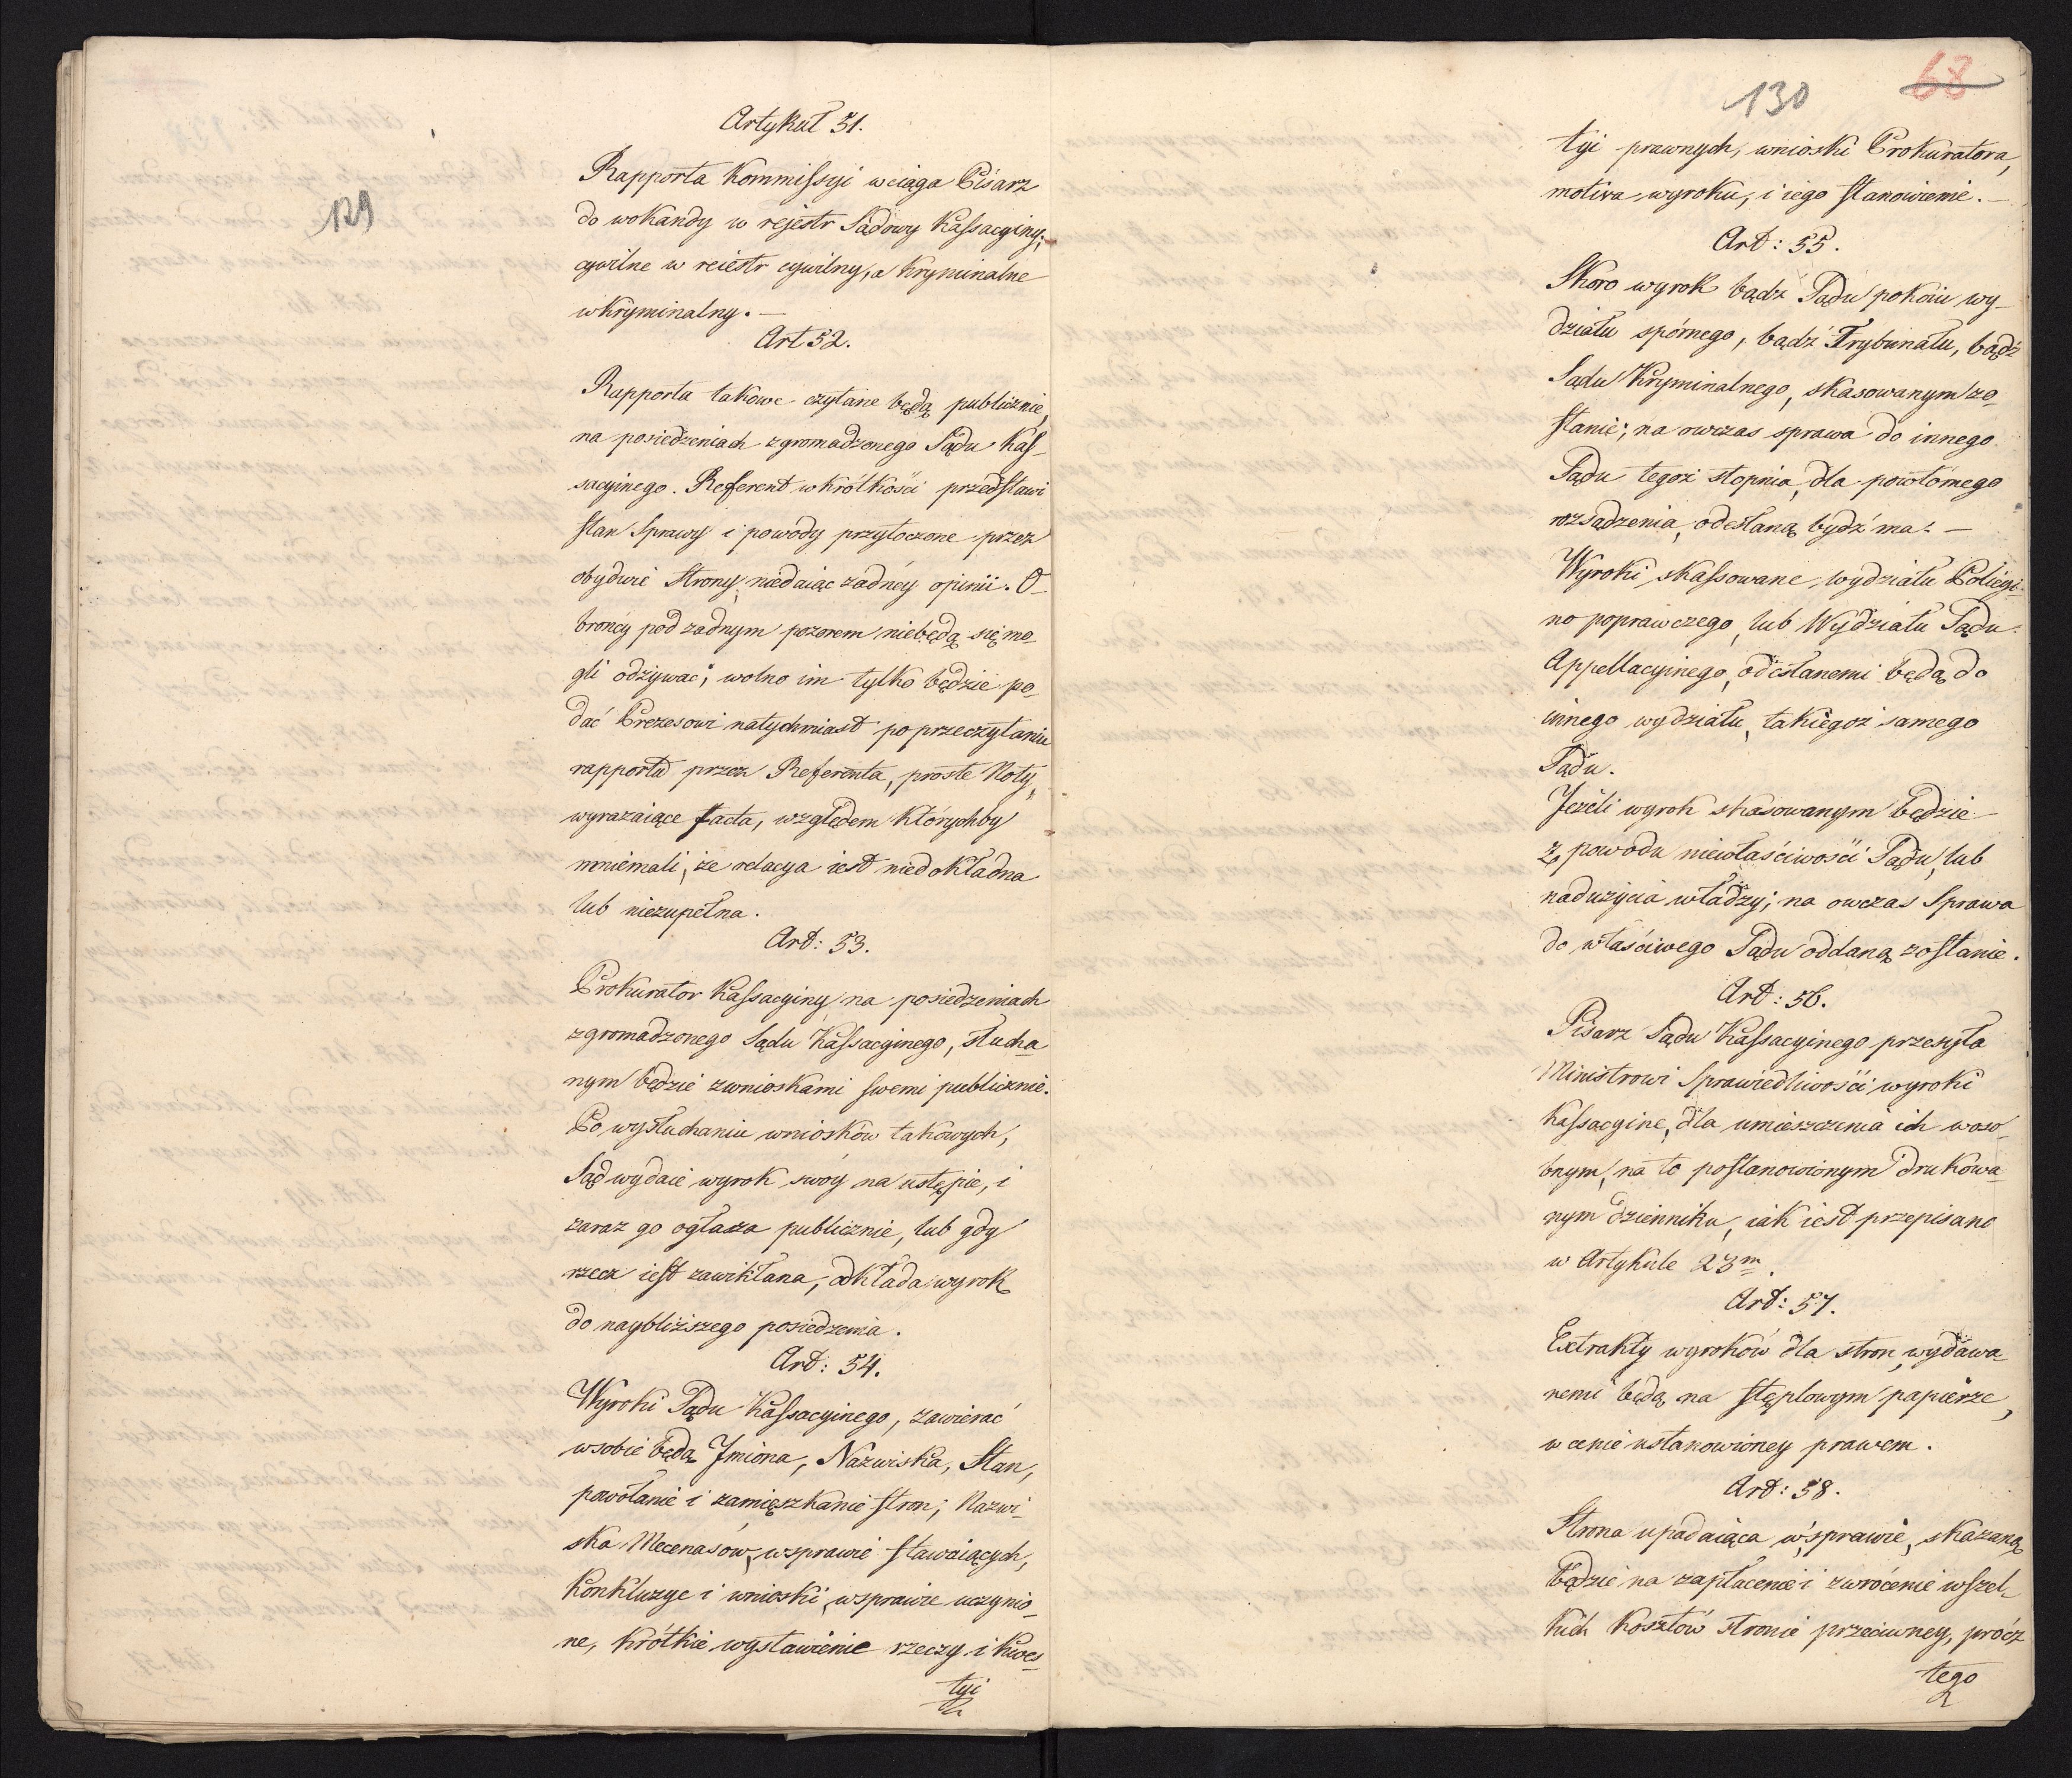 129
Artykuł 51.
Rapporta Kommissyi wciąga Pisarz
do wokandy w rejestr Sądowy Kassacyiny;
cywilne w reiestr cywilny, a kryminalne
w kryminalny. —
Art 52.
Rapporta takowe czytane będą publicznie,
na posiedzeniach zgromadzonego Sądu Kas-
sacyinego. Referent w krótkości przedstawi
stan Sprawy i powody przytoczone przez
obydwie Strony, niedaiąc żadney opinii. O-
brońcy pod żadnym pozorem niebędą się mo-
gli odzywać; wolno im tylko będzie po-
dać Prezesowi natychmiast po przeczytaniu
rapportu przez Referenta, proste Noty,
wyrażaiące facta, względem którychby
mniemali, że relacya iest niedokładna
lub niezupełna.
Art: 53.
Prokurator Kassacyiny na posiedzeniach
zgromadzonego Sądu Kassacyinego, słucha-
nym będzie z wnioskami swemi publicznie.
Po wysłuchaniu wniosków takowych,
Sąd wydaie wyrok swóy na ustępie, i
zaraz go ogłasza publicznie, lub gdy
rzecz iest zawikłana, odkłada wyrok
do naybliższego posiedzenia.
Art: 54.
Wyroki Sądu Kassacyinego, zawierać
w sobie będą Jmiona, Nazwiska, Stan,
powołanie i zamięszkanie stron; Nazwi-
ska Mecenasów, w sprawie stawaiących,
Konkluzye i wnioski, w sprawie uczynio-
ne, krótkie wystawienie rzeczy i kwes-
tyi
130
68
tyi prawnych, wnioski Prokuratora,
motiva wyroku, i iego stanowienie. —
Art: 55.
Skoro wyrok bądź Sądu pokoiu wy-
działu spornego, bądź Trybunału, bądź
Sądu Kryminalnego, skasowanym zo-
stanie; na owczas sprawa do innego
Sądu tegoż stopnia, dla powtórnego
rozsądzenia, odesłaną bydź ma: —
Wyroki skassowane, wydziału Policyi-
no poprawczego, lub Wydziału Sądu
Appellacyinego, odesłanemi będą do
innego wydziału, takiegoż samego
Sądu.
Jeżeli wyrok skasowanym będzie
z powodu niewłaściwości Sądu, lub
nadużycia władzy; na owczas Sprawa
do właściwego Sądu oddaną zostanie.
Art: 56.
Pisarz Sądu Kassacyinego przesyła
Ministrowi Sprawiedliwości wyroki
Kassacyine, dla umieszczenia ich w oso-
bnym, na to postanowionym drukowa-
nym dzienniku, iak iest przepisano
w Artykule 23m.
Art: 57.
Extrakty wyroków dla stron, wydawa-
nemi będą na stęplowym papierze,
w cenie ustanowioney prawem.
Art: 58.
Strona upadaiąca w sprawie, skazaną
będzie na zapłacenie i zwrócenie wszel-
kich kosztów stronie przeciwney, prócz
tego